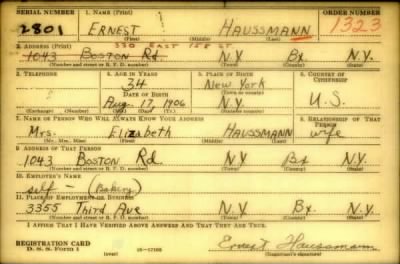 SERIAL NUMBER 1. NAME (Print) ORDER NUMBER
2801 ERNEST HAUSSMANN 1323
(First) (Middle) (Last)
2. ADDRESS (Print) 330 EAST 158 ST.
1043 BOSTON Rd. N.Y. Bx. N.Y.
(Number and street or R. F. D. number) (Town) (County) (State)
3. TELEPHONE 4. AGE IN YEARS 5. PLACE OF BIRTH 6. COUNTRY OF CITIZENSHIP
34 New York
DATE OF BIRTH (Town or county)
Aug. 17, 1906 N.Y. U.S.
(Exchange) (Number) (Mo.) (Day) (Yr.) (State or country)
7. NAME OF PERSON WHO WILL ALWAYS KNOW YOUR ADDRESS 8. RELATIONSHIP OF THAT PERSON
Mrs. Elizabeth HAUSSMANN wife
(Mr., Mrs., Miss) (First) (Middle) (Last)
9. ADDRESS OF THAT PERSON
1043 Boston Rd. N.Y. Bx N.Y.
(Number and street or R. F. D. number) (Town) (County) (State)
10. EMPLOYER'S NAME
self - (Bakery)
11. PLACE OF EMPLOYMENT OR BUSINESS
3355 Third Ave N.Y. Bx. N.Y.
(Number and street or R. F. D. number) (Town) (County) (State)
I AFFIRM THAT I HAVE VERIFIED ABOVE ANSWERS AND THAT THEY ARE TRUE.
REGISTRATION CARD
D. S. S. FORM 1 (over) 16-17105 Ernest Haussmann
(Registrant's signature)